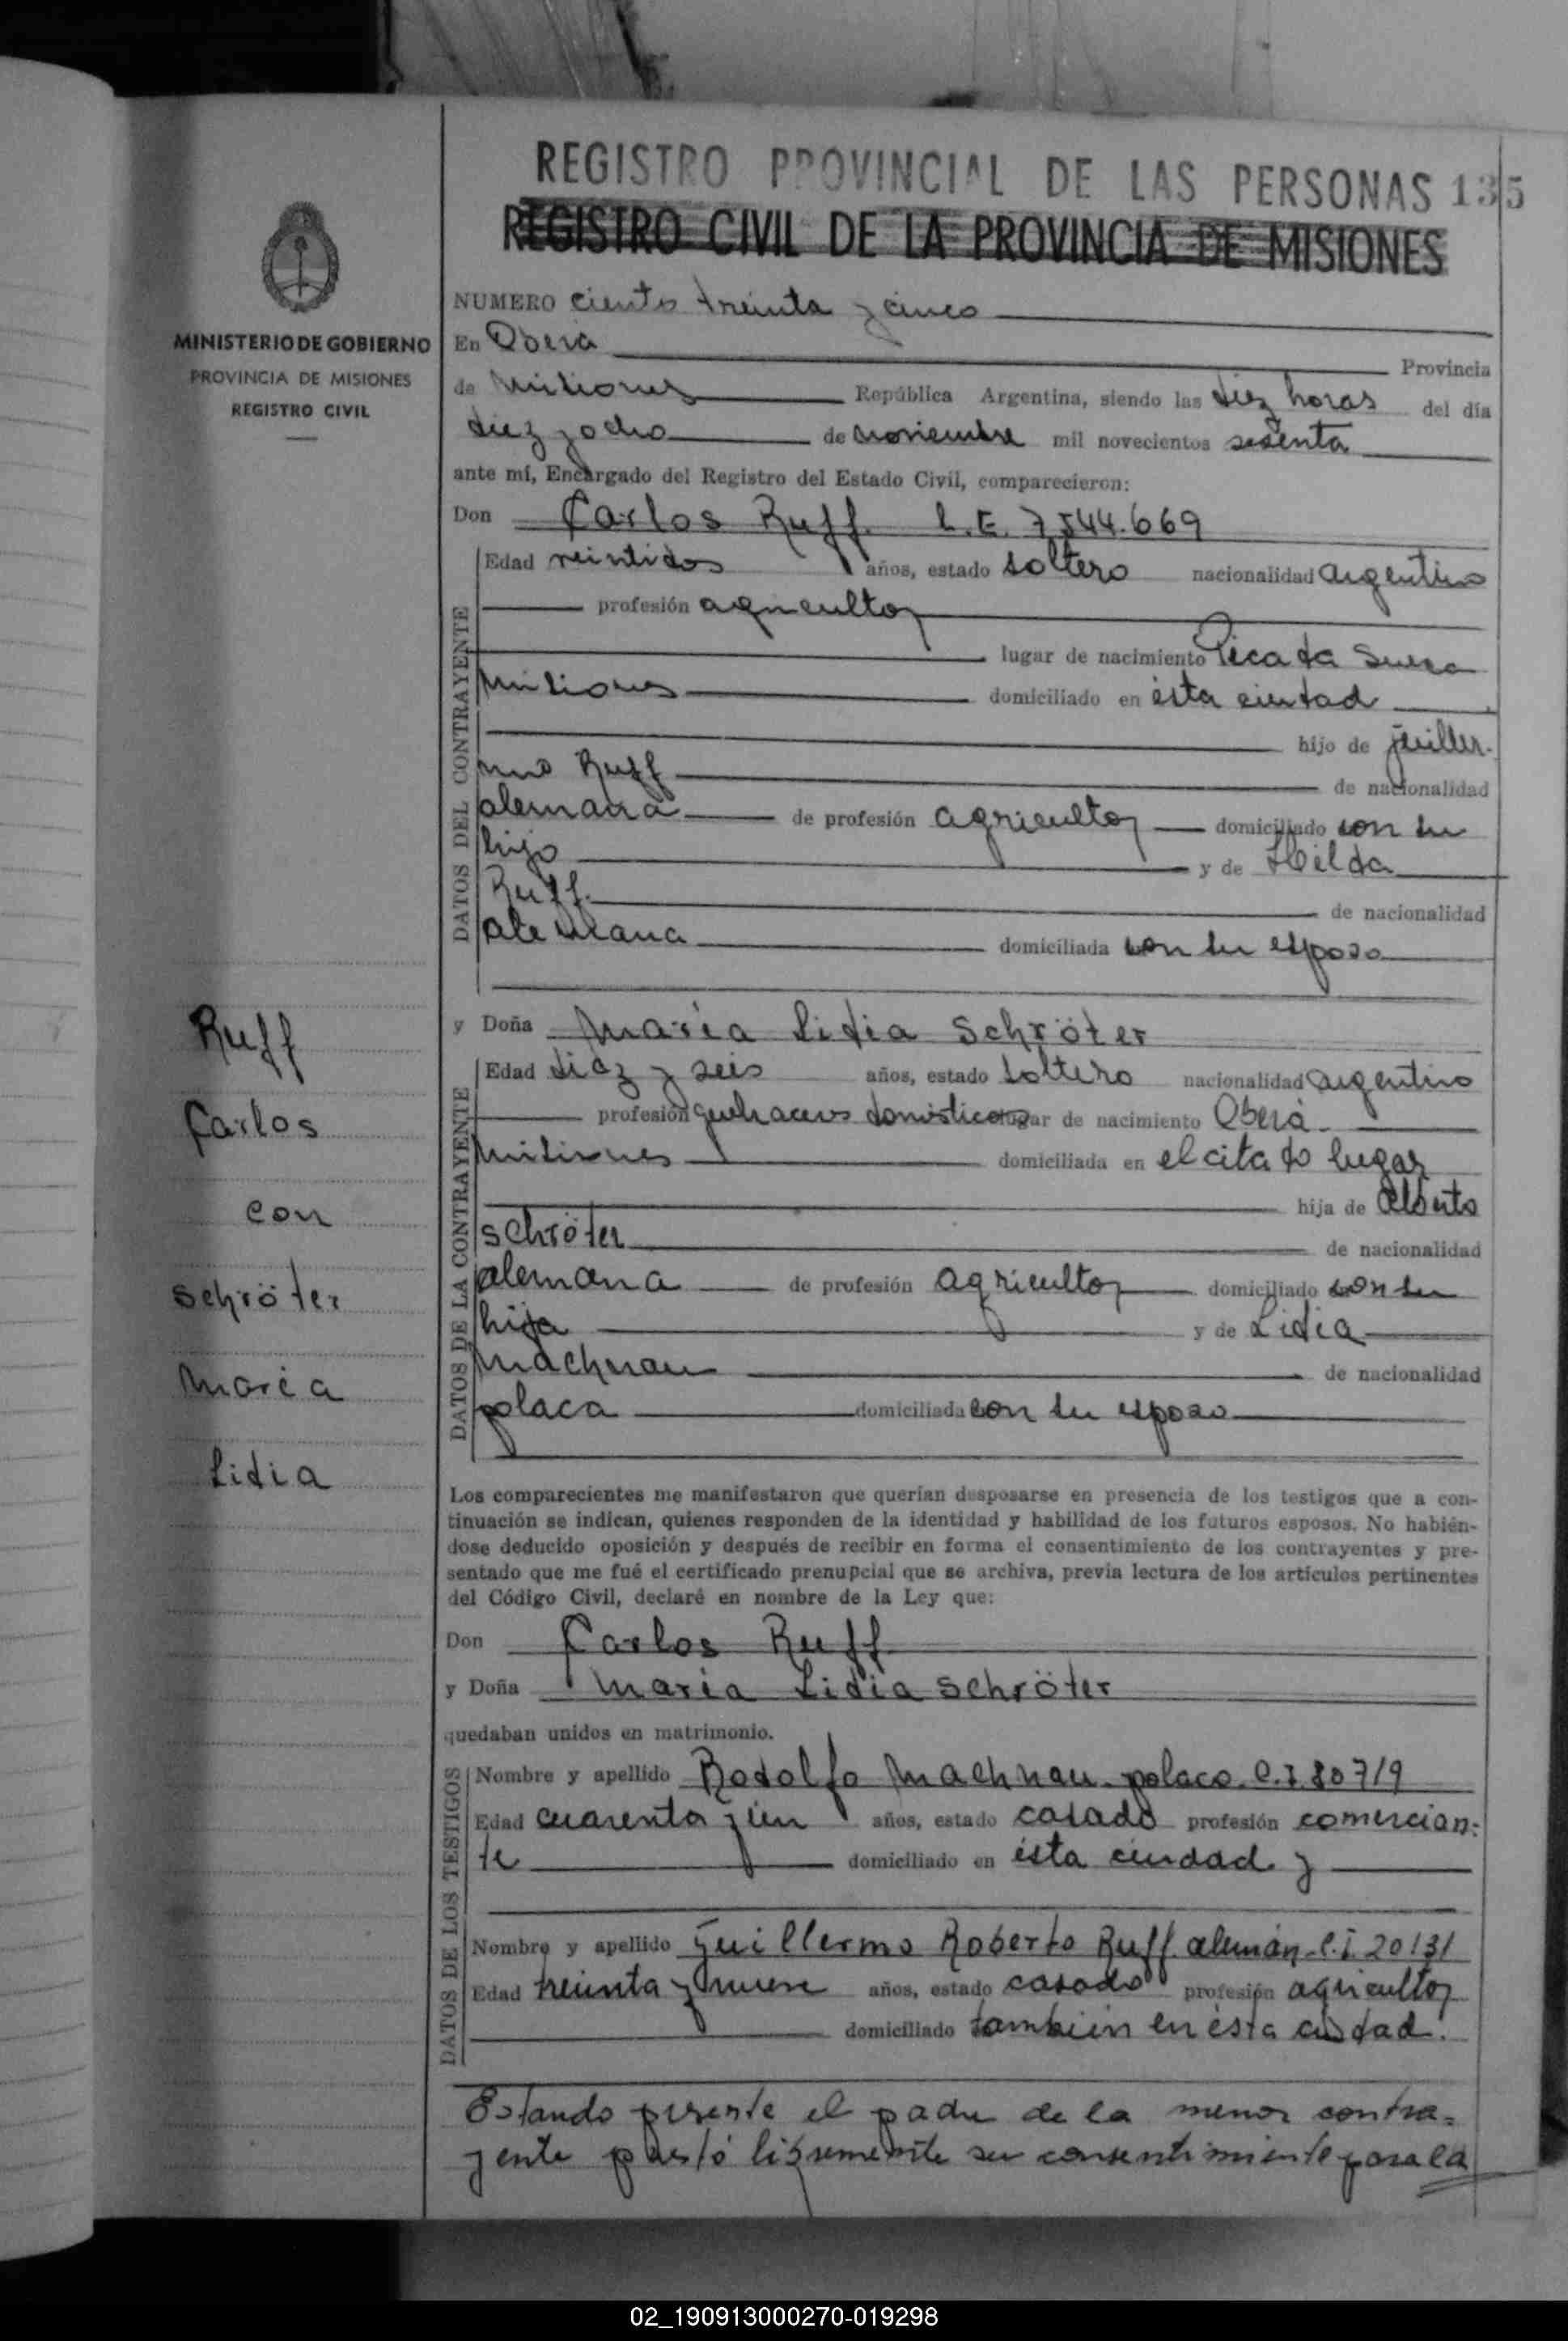 REGISTRO PROVINCIAL DE LAS PERSONAS 135
REGISTRO CIVIL DE LA PROVINCIA DE MISIONES
MINISTERIO DE GOBIERNO
PROVINCIA DE MISIONES
REGISTRO CIVIL
NUMERO ciento treinta y cinco
En Oberá Provincia
de Misiones República Argentina, siendo las diez horas del día
diez y ocho de noviembre mil novecientos sesenta
ante mí, Encargado del Registro del Estado Civil, comparecieron:
Don Carlos Ruff. L.E. 7544.669
DATOS DEL CONTRAYENTE
Edad veintidos años, estado soltero nacionalidad argentino
profesión agricultor
lugar de nacimiento Picada Sueca
Misiones domiciliado en ésta ciudad
hijo de Guiller-
mo Ruff de nacionalidad
alemana de profesión agricultor domiciliado con su
hijo y de Hilda
Ruff. de nacionalidad
alemana domiciliada con su esposo
Ruff
Carlos
con
Schröter
María
Lidia
y Doña María Lidia Schröter
DATOS DE LA CONTRAYENTE
Edad diez y seis años, estado soltero nacionalidad argentino
profesión quehaceres domésticos lugar de nacimiento Oberá
Misiones domiciliada en el citado lugar
hija de Alberto
Schröter de nacionalidad
alemana de profesión agricultor domiciliado con su
hija y de Lidia
Machnau de nacionalidad
polaca domiciliada con su esposo
Los comparecientes me manifestaron que querían desposarse en presencia de los testigos que a con-
tinuación se indican, quienes responden de la identidad y habilidad de los futuros esposos. No habién-
dose deducido oposición y después de recibir en forma el consentimiento de los contrayentes y pre-
sentado que me fué el certificado prenupcial que se archiva, previa lectura de los artículos pertinentes
del Código Civil, declaré en nombre de la Ley que:
Don Carlos Ruff
y Doña María Lidia Schröter
quedaban unidos en matrimonio.
DATOS DE LOS TESTIGOS
Nombre y apellido Rodolfo Machnau. polaco. C.I. 80719
Edad cuarenta y un años, estado casado profesión comercian-
te domiciliado en ésta ciudad y
Nombre y apellido Guillermo Roberto Ruff. alemán. C.I. 20131
Edad treinta y nueve años, estado casado profesión agricultor
domiciliado también en ésta ciudad.
Estando presente el padre de la menor contra-
yente prestó libremente su consentimiento para la
02_190913000270-019298